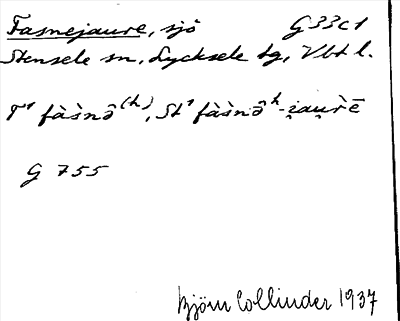 Fasnejaure, sjö G33c1
Stensele sn, Lycksele tg, Vbt l.
T¹ fàs̀nə̑⁽ʰ⁾, St¹ fàs̀nə̑ʰ-i̯au̯r̀ē
G 755
Björn Collinder 1937